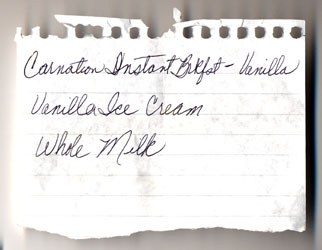 Carnation Instant Brkfst - Vanilla
Vanilla Ice Cream
Whole Milk